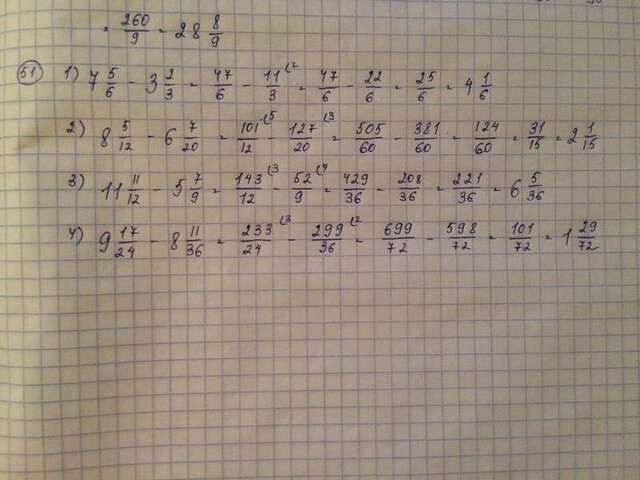 = 260/9 = 28 8/9
51 1) 7 5/6 - 3 2/3 = 47/6 - 11/3 (2 = 47/6 - 22/6 = 25/6 = 4 1/6
2) 8 5/12 - 6 7/20 = 101/12 (5 - 127/20 (3 = 505/60 - 381/60 = 124/60 = 31/15 = 2 1/15
3) 11 11/12 - 5 7/9 = 143/12 (3 - 52/9 (4 = 429/36 - 208/36 = 221/36 = 6 5/36
4) 9 17/24 - 8 11/36 = 233/24 (3 - 299/36 (2 = 699/72 - 598/72 = 101/72 = 1 29/72